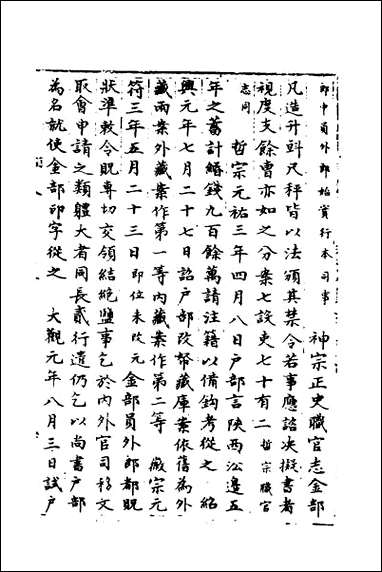 郎中員外郎始實行本司事
神宗正史職官志金部
凡造升㪷尺秤皆以法頒其禁令若事應諮决擬書者
視度支餘曹亦如之分案七設吏七十有二哲宗職官
志同
哲宗元祐三年四月八日户部言陝西㳂邊五
年之蓄計緡錢九百餘萬請注籍以備鈎考從之 紹
興元年七月二十七日詔户部改幣藏庫案依舊為外
藏兩案外藏案作第一等内藏案作第二等 徽宗元
符三年五月二十三日即位未改元金部員外郎都貺
狀準敕令貺專切交領結絶鹽事乞於内外官司移文
取會申請之類體大者同長貳行遣仍乞以尚書户部
為名就使金部印字從之 大觀元年八月三日試户